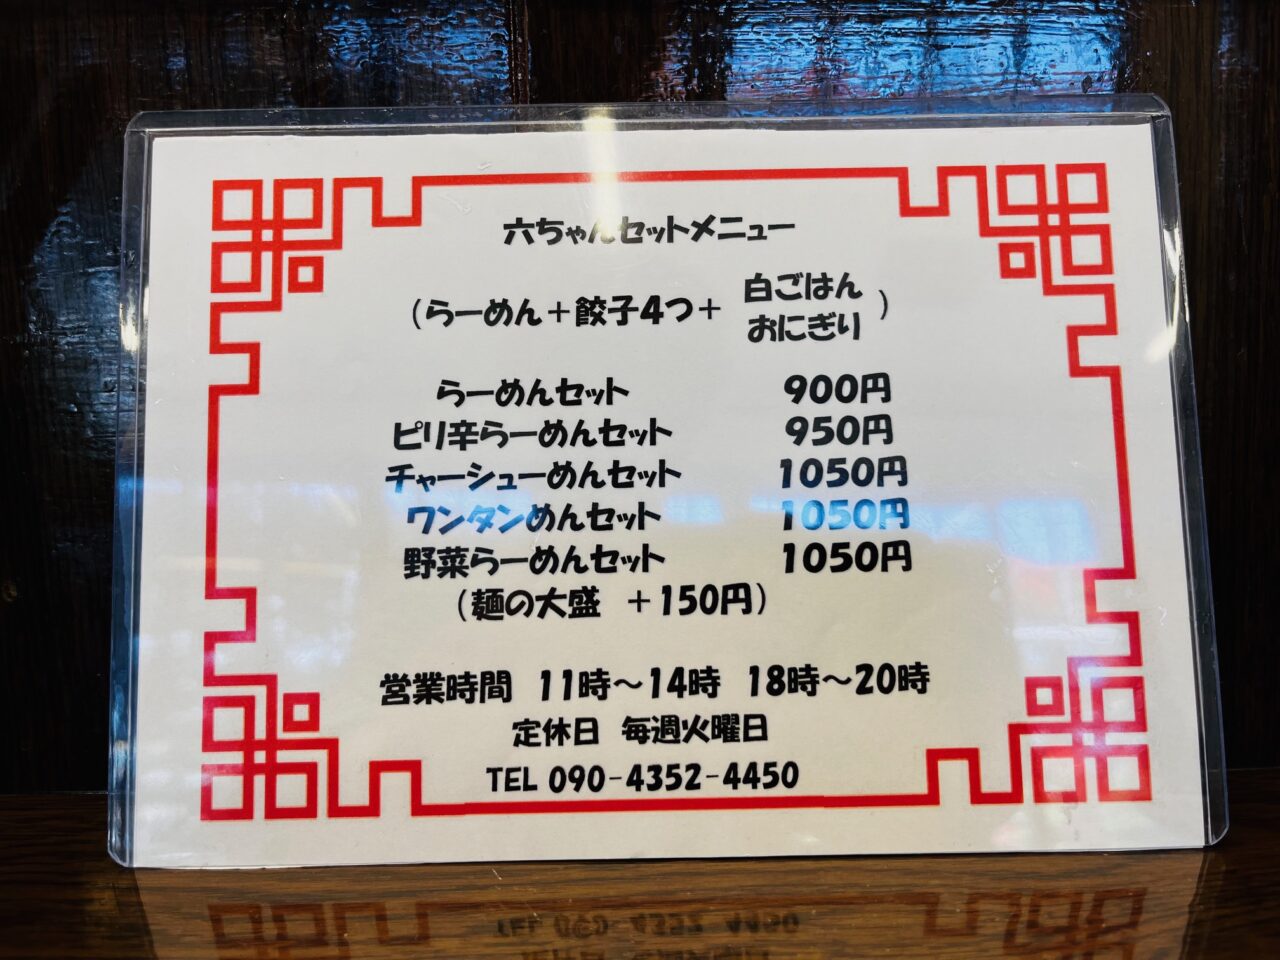 六ちゃんセットメニュー
(らーめん＋餃子4つ＋ 白ごはん
おにぎり )
らーめんセット 900円
ピリ辛らーめんセット 950円
チャーシューめんセット 1050円
ワンタンめんセット 1050円
野菜らーめんセット 1050円
(麺の大盛 ＋150円)
営業時間 11時～14時 18時～20時
定休日 毎週火曜日
TEL 090-4352-4450